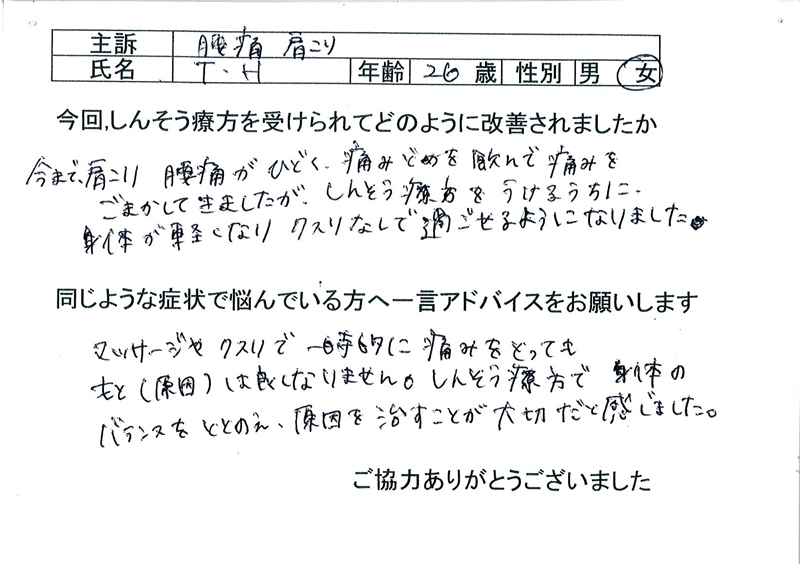 主訴 腰痛 肩こり
氏名 T・H 年齢 26 歳 性別 男 女
今回,しんそう療方を受けられてどのように改善されましたか
今まで、肩こり 腰痛がひどく、痛みどめを飲んで痛みを
ごまかしてきましたが、しんそう療方をうけるうちに、
身体が軽くなり クスリなしで過ごせるようになりました。
同じような症状で悩んでいる方へ一言アドバイスをお願いします
マッサージや クスリで 一時的に 痛みをとっても
もと(原因)は良くなりません。しんそう療方で 身体の
バランスを ととのえ、原因を治すことが 大切だと感じました。
ご協力ありがとうございました